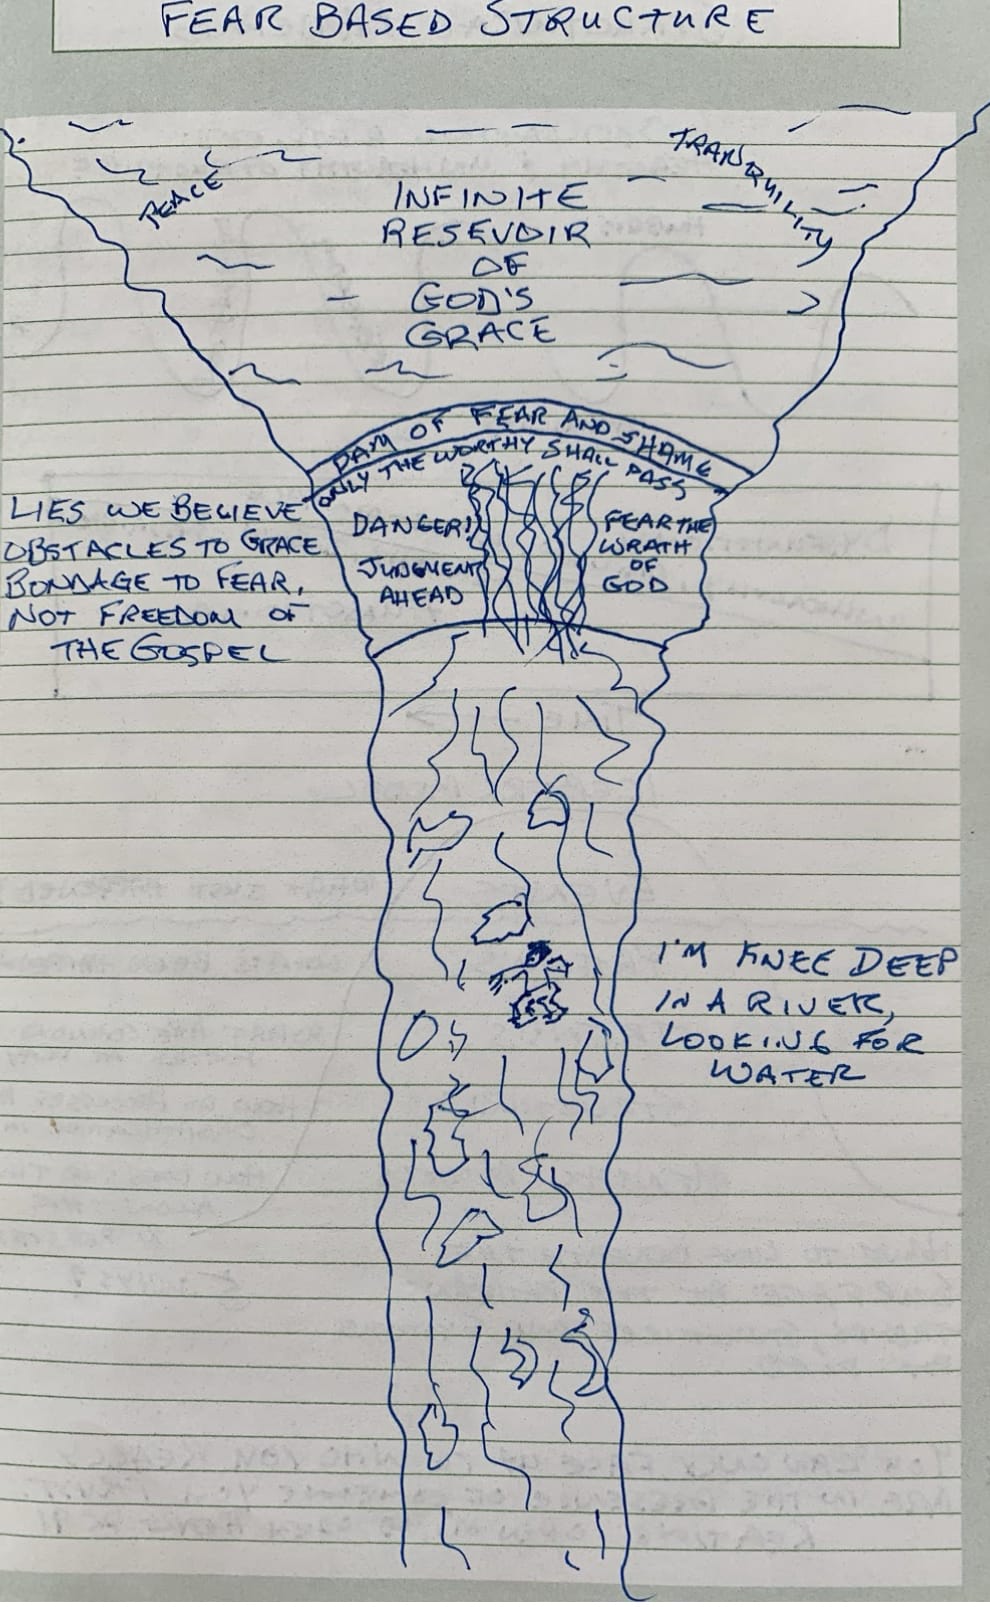 FEAR BASED STRUCTURE
PEACE
TRANQUILITY
INFINITE
RESEVOIR
OF
GOD'S
GRACE
DAM OF FEAR AND SHAME
ONLY THE WORTHY SHALL PASS
LIES WE BELIEVE
OBSTACLES TO GRACE
BONDAGE TO FEAR,
NOT FREEDOM OF
THE GOSPEL
DANGER!
JUDGMENT
AHEAD
FEAR THE
WRATH
OF
GOD
I'M KNEE DEEP
IN A RIVER,
LOOKING FOR
WATER